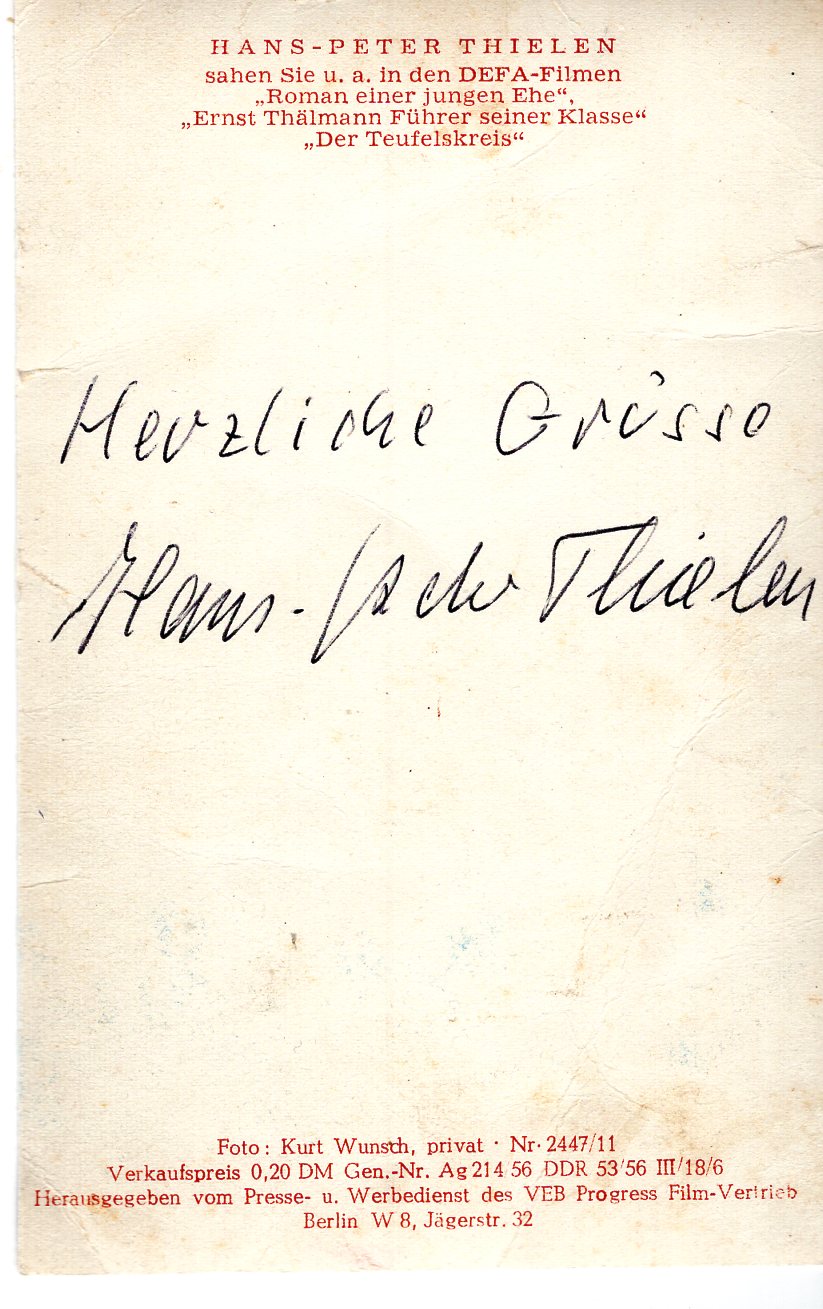 HANS-PETER THIELEN
sahen Sie u. a. in den DEFA-Filmen
„Roman einer jungen Ehe“,
„Ernst Thälmann Führer seiner Klasse“
„Der Teufelskreis“
Herzliche Grüsse
Hans-Peter Thielen
Foto: Kurt Wunsch, privat · Nr. 2447/11
Verkaufspreis 0,20 DM Gen.-Nr. Ag 214/56 DDR 53/56 III/18/6
Herausgegeben vom Presse- u. Werbedienst des VEB Progress Film-Vertrieb
Berlin W 8, Jägerstr. 32